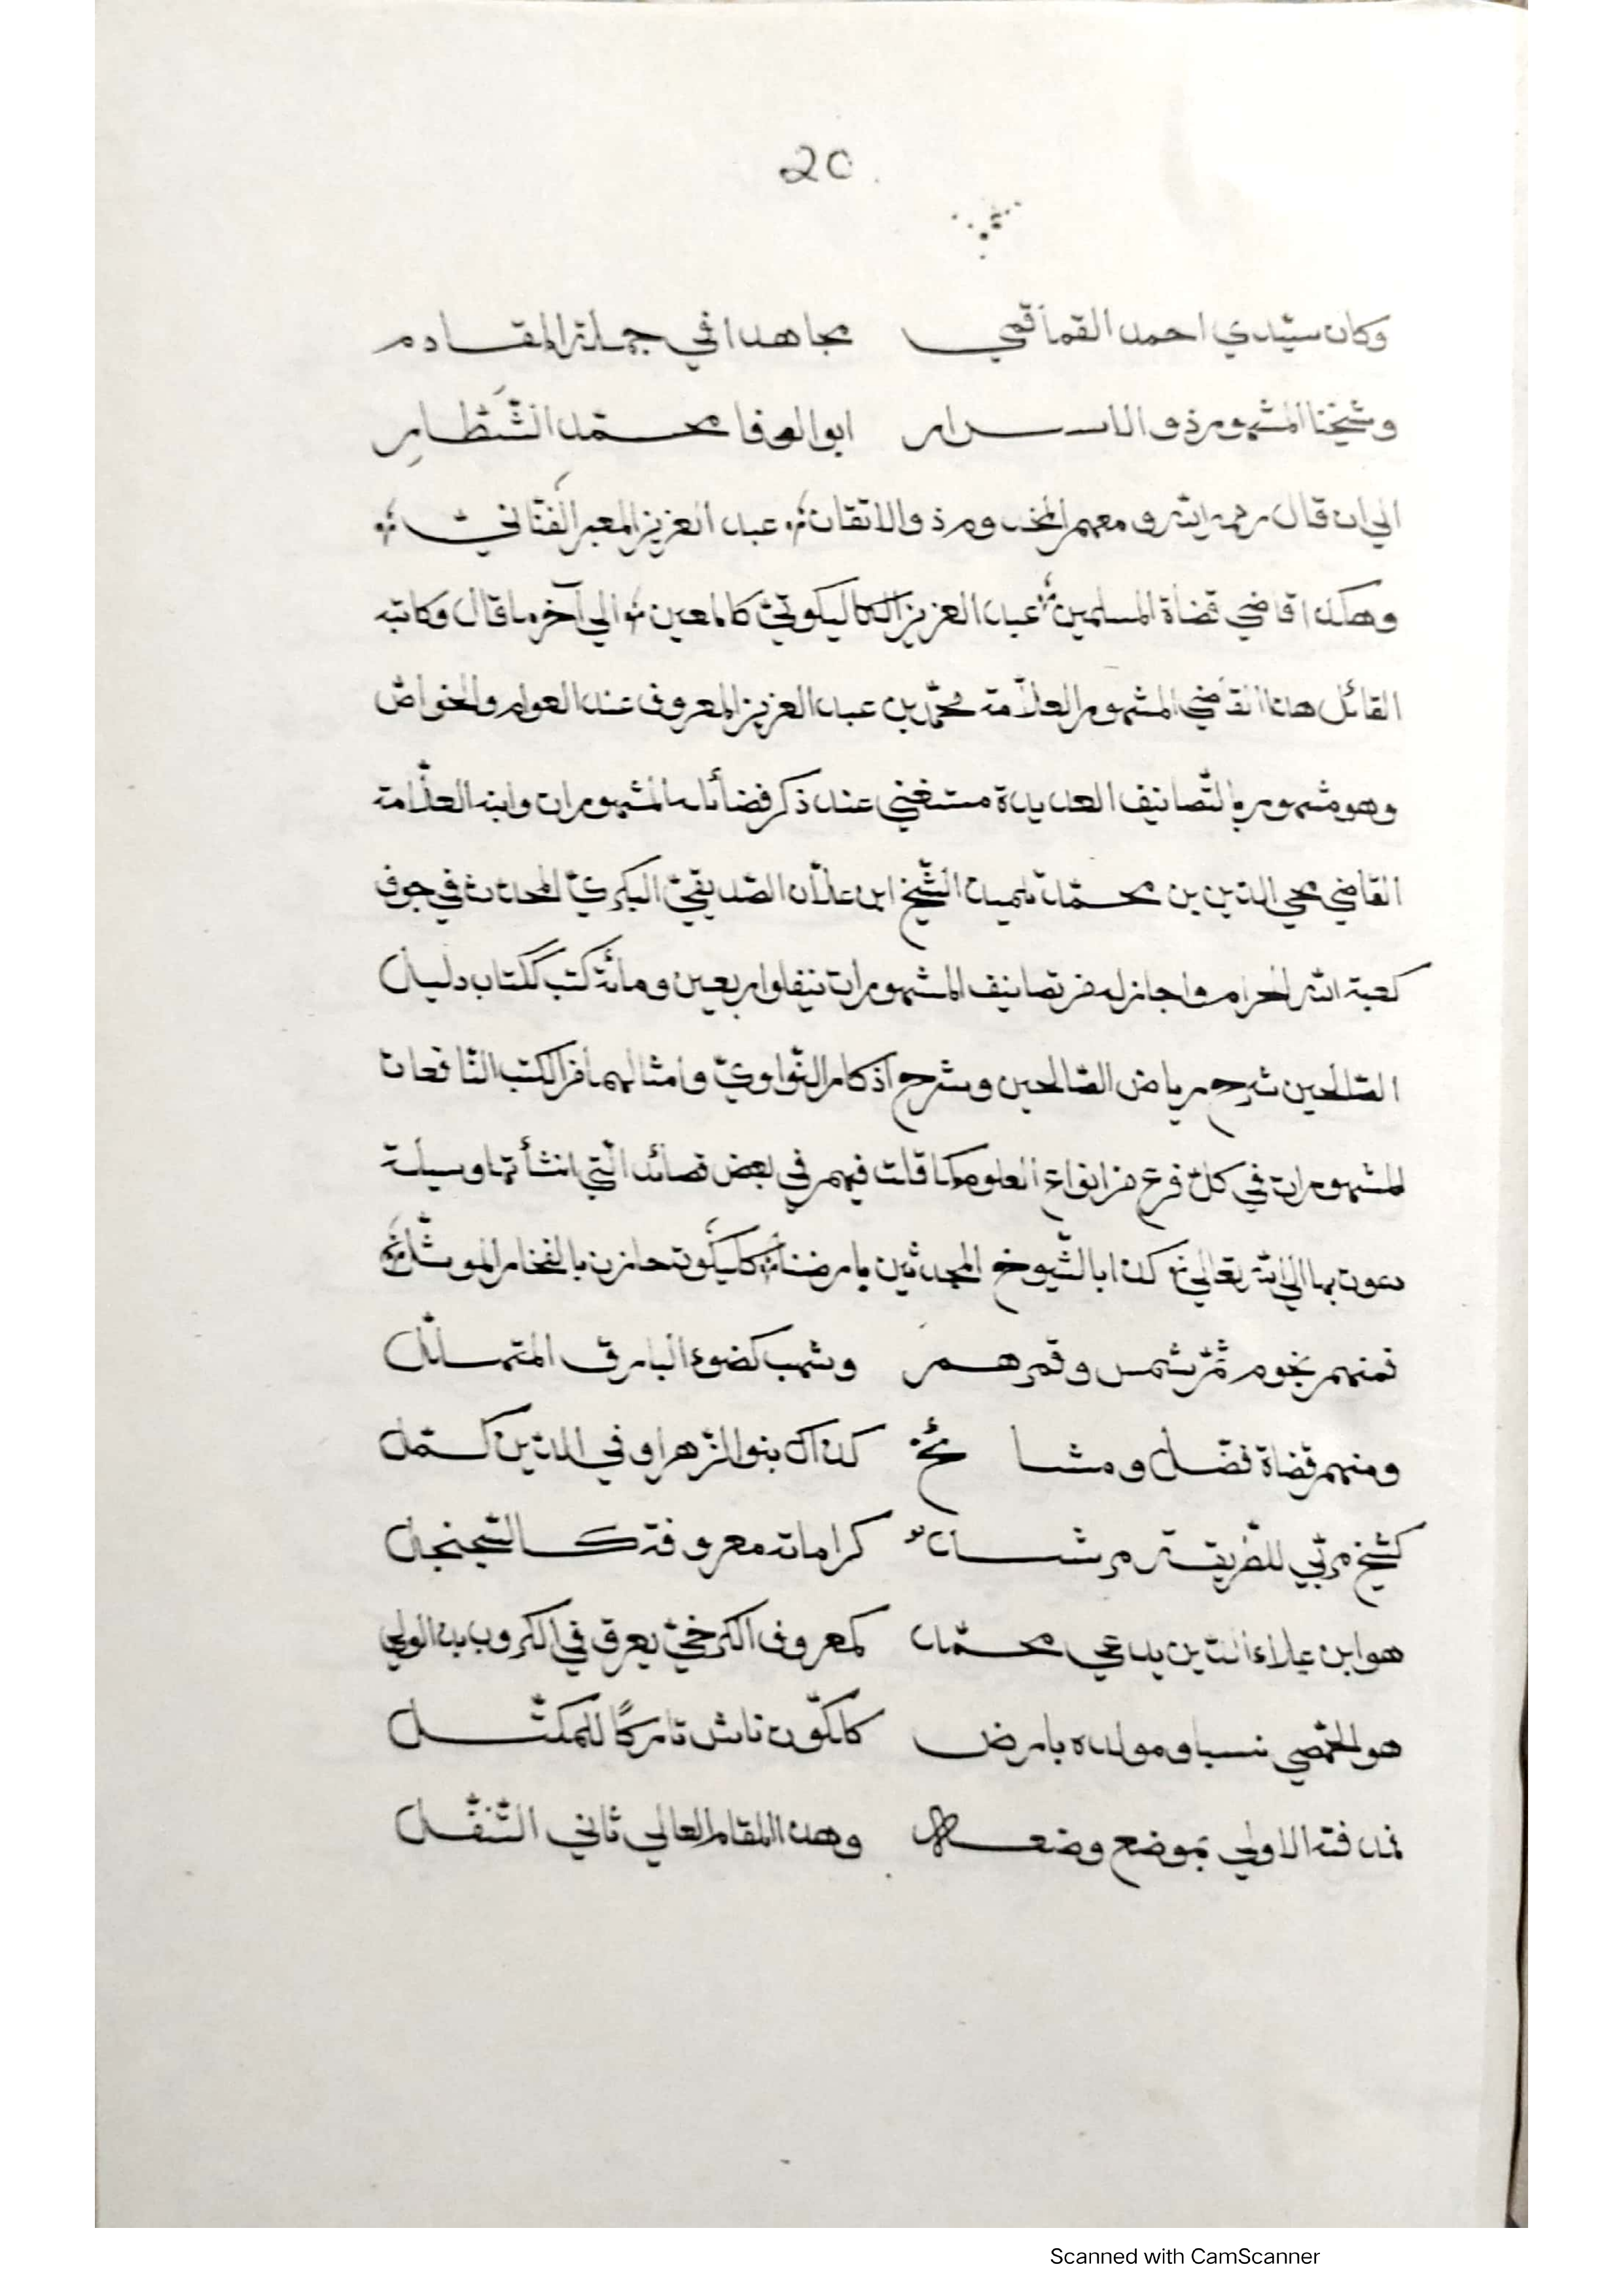 20
وكان سيّدي احمد القماقمي مجاهدا في جملة المقادم
وشيخنا المشهور ذو الاسرار ابو الوفا محمّد الشّطّار
الي ان قال رحمه الله ومعهم المخدوم ذو الاتقان عبد العزيز المعبر الفنّاني
وهكذا قاضي قضاة المسلمين عبد العزيز الكاليكوتي كالمعين الي آخر ما قال وكاتبه
القائل هذا القاضي المشهور العلّامة محمّد بن عبد العزيز المعروف عند العوام والخواصّ
وهو مشهور بالتّصانيف العديدة مستغني عند ذكر فضائله المشهورات وابنه العلّامة
القاضي محي الدّين بن محمّد تلميذ الشّيخ ابن علّان الصّديقيّ البكريّ المحدّث في جوف
كعبة الله الحرام واجاز له من تصانيف المشهورات نيفا واربعين ومائة كتب ككتاب دليل
الصّالحين شرح رياض الصّالحين وشرح اذكار النّواويّ وامثالهما من الكتب النّافعات
المشهورات في كلّ فرع من انواع العلوم كما قلت فيهم في بعض قصائد الّتي انشأتها وسيلة
دعوت بها الي الله تعالي كذا بالشّيوخ المحدثين بارضنا كاليكوت حازن بالفخار
فمنهم نجوم ثمّ شمس وقمرهم وشهب كضوء البارق المتهسائل
ومنهم قضاة فضّل ومشائخ كذاك بنو الزّهراء في الدّين كمّل
كشيخ مربّي للطّريقة مرشد كراماته معروفة كالسّجنجل
هو ابن علاء الدّين يدعي محمّد كمعروف الكرخيّ يعرف في الكروب بذ الولي
هو الحمصي نسبا ومولده بارض كالكوّن ناش تاركًا للمكثّل
فمدفنه الاولي بموضع وضعه وهذا المقام العالي ثاني التّنقّل
Scanned with CamScanner